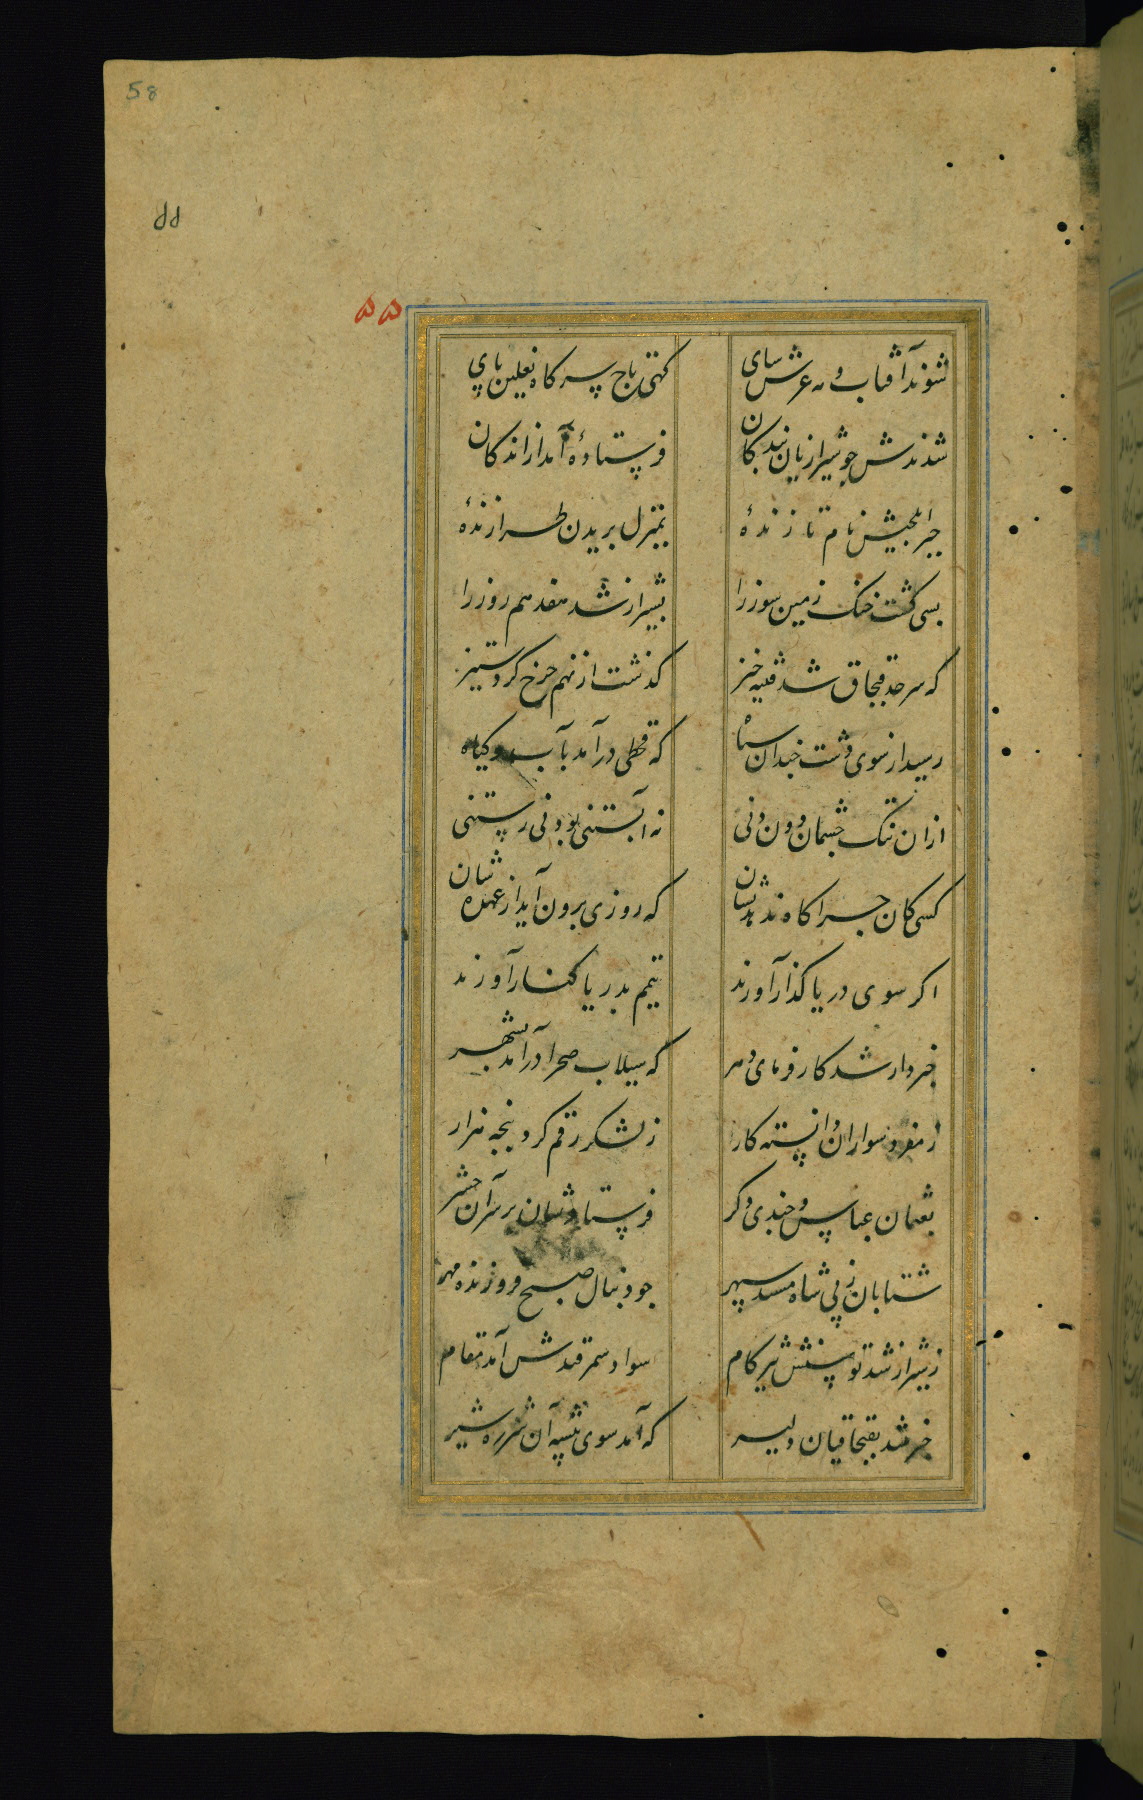 58
۵۵
۵۵
شوند آفتاب و مه عرش سای کهی تاج سر کاه نعلین پای
شدندش چو شیراز یان بندکان فرستادهٔ آمد از اندکان
نام تازندهٔ بمنزل بریدن طرازندهٔ
بسی کشت خنک زمین سوز را بشیراز شد هفدهم روز را
که سرحد قبجاق شد فتنه خیز کذشت از نهم چرخ کرد ستیز
رسید از سوی دشت چندان سپاه که قحطی درآمد بآب و کیاه
ازان تنک چشمان دون دنی نه آبستنی بود نی رستنی
کسی کان چرا کاه ندیدشان که روزی برون آید از عهده شان
اکر سوی دریا کذار آورند تیمم بدریا کنار آورند
خبردار شد کارفرمای دهر که سیلاب صحرا درآمد بشهر
ز مفرد سواران دانسته کار ز لشکر رقم کرد پنجه هزار
بعثمان عباس و چندی دکر فرستادشان بر سر آن حشر
شتابان ز پی شاه مسند سپهر چو دنبال صبح فروزنده مهر
ز شیراز شد توسنش تیز کام سواد سمرقندش آمد مقام
خبر شد بقبجاقیان دلیر که آمد سوی بیشه آن شرزه شیر